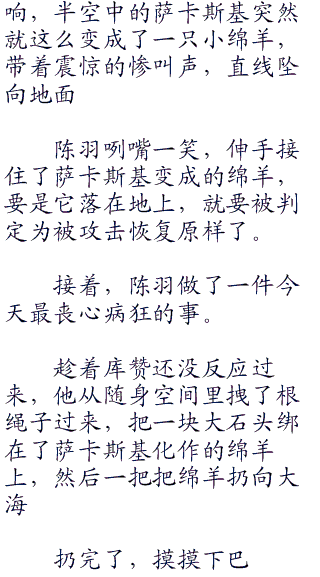 响，半空中的萨卡斯基突然
就这么变成了一只小绵羊，
带着震惊的惨叫声，直线坠
向地面
陈羽咧嘴一笑，伸手接
住了萨卡斯基变成的绵羊，
要是它落在地上，就要被判
定为被攻击恢复原样了。
接着，陈羽做了一件今
天最丧心病狂的事。
趁着库赞还没反应过
来，他从随身空间里拽了根
绳子过来，把一块大石头绑
在了萨卡斯基化作的绵羊
上，然后一把把绵羊扔向大
海
扔完了，摸摸下巴